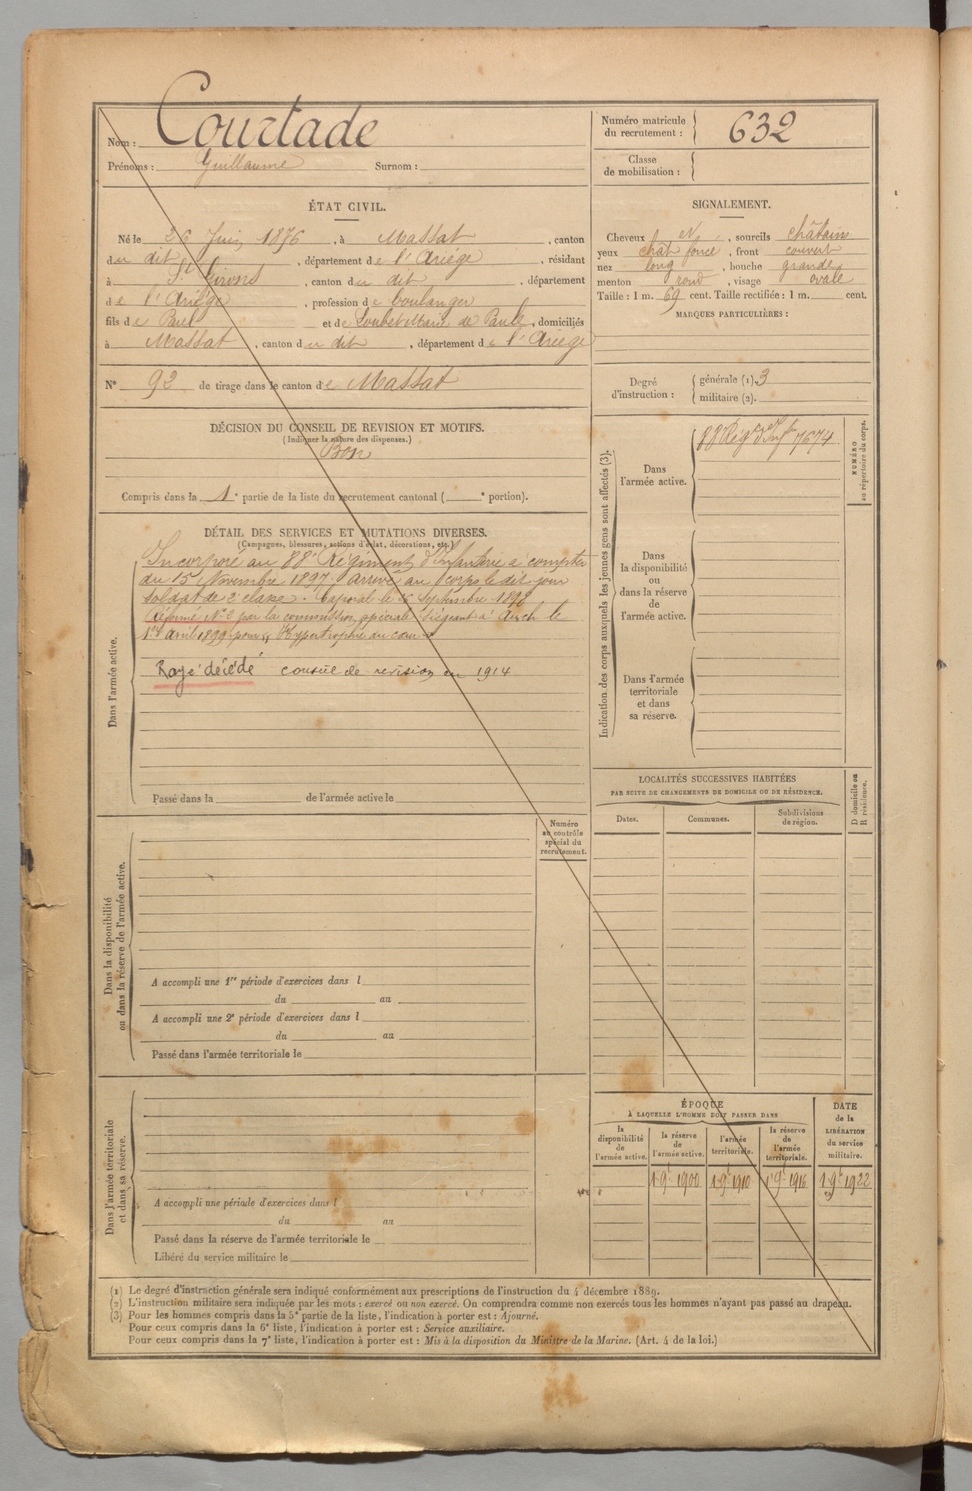 Nom : Courtade
Prénoms : Guillaume Surnom :
ÉTAT CIVIL.
Né le 26 Juin 1876, à Massat, canton
du dit, département de l'Ariège, résidant
à St Girons, canton du dit, département
de l'Ariège, profession de boulanger
fils de Paul et de Loubet Marie de Paule, domiciliés
à Massat, canton du dit, département de l'Ariège
N° 92 de tirage dans le canton de Massat
DÉCISION DU CONSEIL DE REVISION ET MOTIFS.
(Indiquer la nature des dispenses.)
Bon
Compris dans la 1e partie de la liste du recrutement cantonal ( e portion).
DÉTAIL DES SERVICES ET MUTATIONS DIVERSES.
(Campagnes, blessures, actions d'éclat, décorations, etc.)
Dans l'armée active.
Incorporé au 88e Régiment d'Infanterie à compter
du 15 Novembre 1897. Arrivé au corps le dit jour
soldat de 2e classe. Caporal le Septembre 1898
Réformé N° 2 par la commission spéciale siégeant à Auch le
1er avril 1899 pour Hypertrophie du cœur
Rayé décédé conseil de revision en 1914
Passé dans la de l'armée active le
Numéro
au contrôle
spécial du
recrutement.
Dans la disponibilité
ou dans la réserve de l'armée active.
A accompli une 1re période d'exercices dans l
du au
A accompli une 2e période d'exercices dans l
du au
Passé dans l'armée territoriale le
Dans l'armée territoriale
et dans sa réserve.
A accompli une période d'exercices dans l
du au
Passé dans la réserve de l'armée territoriale le
Libéré du service militaire le
Numéro matricule
du recrutement : 632
Classe
de mobilisation :
SIGNALEMENT.
Cheveux et, sourcils châtain
yeux chat foncé, front couvert
nez long, bouche grande
menton rond, visage ovale
Taille : 1 m. 69 cent. Taille rectifiée : 1 m. cent.
MARQUES PARTICULIÈRES :
Degré
d'instruction :
générale (1). 3
militaire (2).
Indication des corps auxquels les jeunes gens sont affectés (3).
NUMÉRO
au répertoire du corps.
Dans
l'armée active.
88 Régt d'Inf. 7674
Dans
la disponibilité
ou
dans la réserve
de
l'armée active.
Dans l'armée
territoriale
et dans
sa réserve.
LOCALITÉS SUCCESSIVES HABITÉES
PAR SUITE DE CHANGEMENTS DE DOMICILE OU DE RÉSIDENCE.
D domicile ou
R résidence.
Dates. Communes. Subdivisions
de région.
ÉPOQUE
À LAQUELLE L'HOMME DOIT PASSER DANS
la
disponibilité
de
l'armée active.
la réserve
de
l'armée active.
l'armée
territoriale.
la réserve
de
l'armée
territoriale.
DATE
de la
LIBÉRATION
du service
militaire.
1 9e 1900 1 9e 1910 1 9e 1916 1 9e 1922
(1) Le degré d'instruction générale sera indiqué conformément aux prescriptions de l'instruction du 4 décembre 1889.
(2) L'instruction militaire sera indiquée par les mots : exercé ou non exercé. On comprendra comme non exercés tous les hommes n'ayant pas passé au drapeau.
(3) Pour les hommes compris dans la 5e partie de la liste, l'indication à porter est : Ajourné.
Pour ceux compris dans la 6e liste, l'indication à porter est : Service auxiliaire.
Pour ceux compris dans la 7e liste, l'indication à porter est : Mis à la disposition du Ministre de la Marine. (Art. 4 de la loi.)